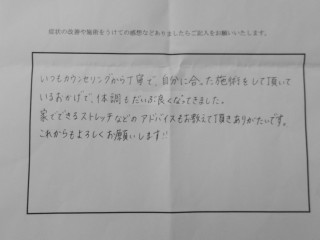 症状の改善や施術をうけての感想などありましたらご記入をお願いいたします。
いつもカウンセリングから丁寧で、自分に合った施術をして頂いて
いるおかげで、体調もだいぶ良くなってきました。
家でできるストレッチなどのアドバイスもお教えて頂きありがたいです。
これからもよろしくお願いします!!